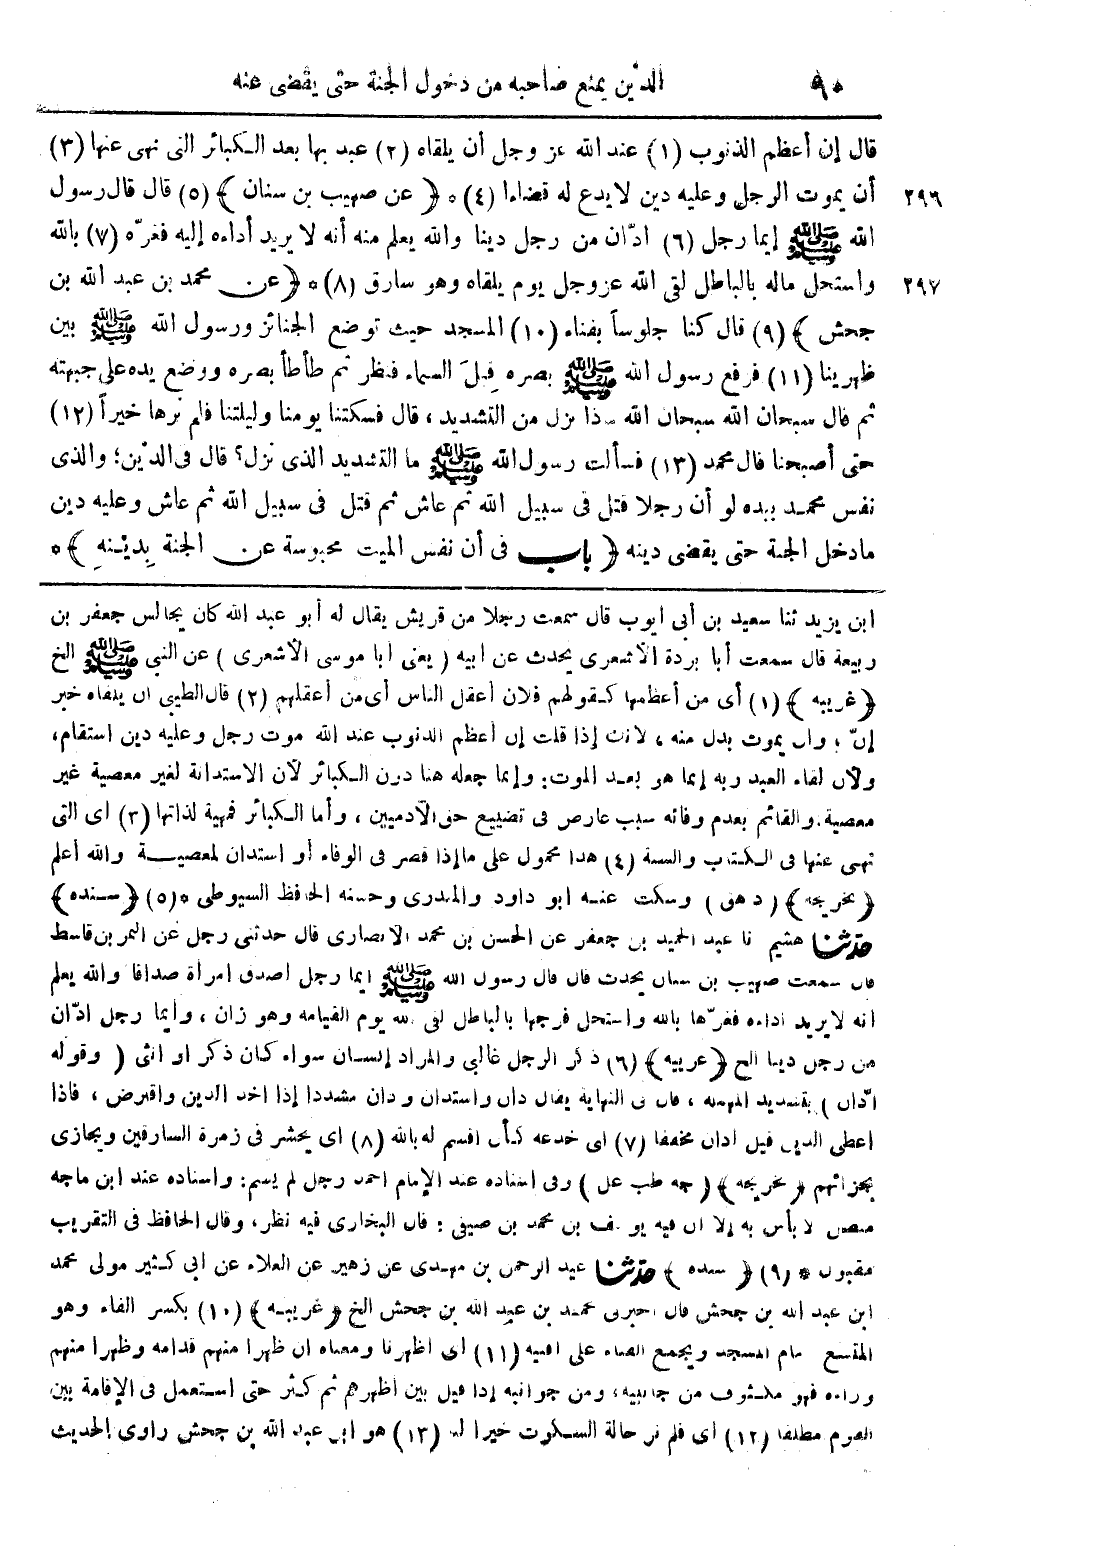 ٩٠ الدّين يمنع صاحبه من دخول الجنة حتى يقضى عنه
قال إن أعظم الذنوب (١) عند الله عز وجل أن يلقاه (٢) عبد بها بعد الكبائر التى نهى عنها (٣)
٢٩٦ أن يموت الرجل وعليه دين لا يدع له قضاءا (٤) * ﴿ عن صهيب بن سنان ﴾ (٥) قال قال رسول
الله ﷺ إيما رجل (٦) ادّان من رجل دينا والله يعلم منه أنه لا يريد أداءه إليه فغرّه (٧) بالله
٢٩٧ واستحل ماله بالباطل لقى الله عز وجل يوم يلقاه وهو سارق (٨) * ﴿ عن محمد بن عبد الله بن
جحش ﴾ (٩) قال كنا جلوساً بفناء (١٠) المسجد حيث توضع الجنائز ورسول الله ﷺ بين
ظهرينا (١١) فرفع رسول الله ﷺ بصره قِبلَ السماء فنظر ثم طأطأ بصره ووضع يده على جبهته
ثم قال سبحان الله سبحان الله ماذا نزل من التشديد، قال فسكتنا يومنا وليلتنا فلم نرها خيراً (١٢)
حتى أصبحنا قال محمد (١٣) فسألت رسول الله ﷺ ما التشديد الذى نزل؟ قال فى الدّين؛ والذى
نفس محمد بيده لو أن رجلا قتل فى سبيل الله ثم عاش ثم قتل فى سبيل الله ثم عاش وعليه دين
مادخل الجنة حتى يقضى دينه ﴿ باب فى أن نفس الميت محبوسة عن الجنة بِدَيْنه ﴾ *
ابن يزيد ثنا سعيد بن أبى أيوب قال سمعت رجلا من قريش يقال له أبو عبد الله كان يجالس جعفر بن
ربيعة قال سمعت أبا بردة الأشعرى يحدث عن ابيه ( يعنى أبا موسى الأشعرى ) عن النبى ﷺ الخ
﴿ غريبه ﴾ (١) أى من أعظمها كقولهم فلان أعقل الناس أى من أعقلهم (٢) قال الطيبى ان يلقاه خبر
إنّ؛ وان يموت بدل منه، لأنك إذا قلت إن أعظم الذنوب عند الله موت رجل وعليه دين استقام،
ولأن لقاء العبد ربه إيما هو بعد الموت: وإيما جعله هنا دون الكبائر لأن الاستدانة لغير معصية غير
معصية. والقائم بعدم وفائه سبب عارض فى تضييع حق الآدميين، وأما الكبائر فمنهية لذاتها (٣) اى التى
نهى عنها فى الكتاب والسنة (٤) هذا محمول على ما إذا قصر فى الوفاء أو استدان لمعصية والله أعلم
﴿ تخريجه ﴾ ( د هق ) وسكت عنه ابو داود والمنذرى وحسنه الحافظ السيوطى * (٥) ﴿ سنده ﴾
حدثنا هشيم نا عبد الحميد بن جعفر عن الحسن بن محمد الانصارى قال حدثنى رجل عن النمر بن قاسط
قال سمعت صهيب بن سنان يحدث قال قال رسول الله ﷺ ايما رجل اصدق امرأة صداقا والله يعلم
انه لا يريد اداءه فغرّها بالله واستحل فرجها بالباطل لقى الله يوم القيامه وهو زان، وأيما رجل ادّان
من رجل دينا الخ ﴿ غريبه ﴾ (٦) ذكر الرجل غالبى والمراد إنسان سواء كان ذكر او انثى ( وقوله
ادّان ) بتشديد المهملة، قال فى النهاية يقال دان واستدان وادان مشددا إذا اخذ الدين واقترض، فاذا
اعطى الدين قيل ادان مخففا (٧) اى خدعه كأن اقسم له بالله (٨) اى يحشر فى زمرة السارقين ويجازى
بجزائهم ﴿ تخريجه ﴾ ( جه طب عل ) وفى اسناده عند الإمام احمد رجل لم يسم: واسناده عند ابن ماجه
متصل لا بأس به إلا ان فيه يوسف بن محمد بن صيفى: قال البخارى فيه نظر، وقال الحافظ فى التقريب
مقبول * (٩) ﴿ سنده ﴾ حدثنا عبد الرحمن بن مهدى عن زهير عن العلاء عن ابى كثير مولى محمد
ابن عبد الله بن جحش قال اخبرنى محمد بن عبد الله بن جحش الخ ﴿ غريبه ﴾ (١٠) بكسر الفاء وهو
المتسع امام المسجد ويجمع الفناء على افنية (١١) اى اظهرنا ومعناه ان ظهرا منهم قدامه وظهرا منهم
وراءه فهو مكنوف من جانبيه، ومن جوانبه إذا قيل بين أظهرهم ثم كثر حتى استعمل فى الإقامة بين
القوم مطلقا (١٢) اى فلم نر حالة السكوت خيرا لنا (١٣) هو ابن عبد الله بن جحش راوى الحديث